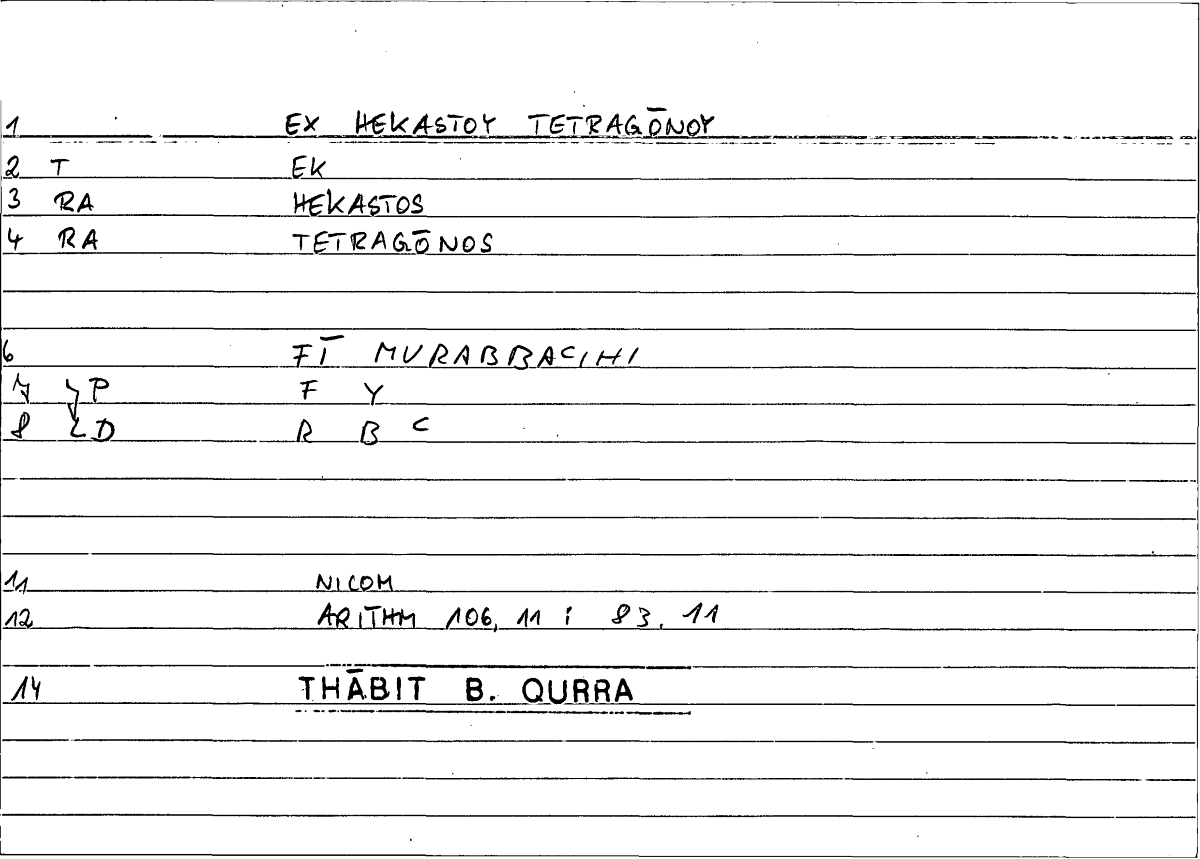 1 EX HEKASTOY TETRAGŌNOY
2 T EK
3 RA HEKASTOS
4 RA TETRAGŌNOS
6 FĪ MURABBAᶜIHI
7 P F Y
8 D R B ᶜ
11 NICOM
12 ARITHM 106, 11 ; 83. 11
14 THĀBIT B. QURRA